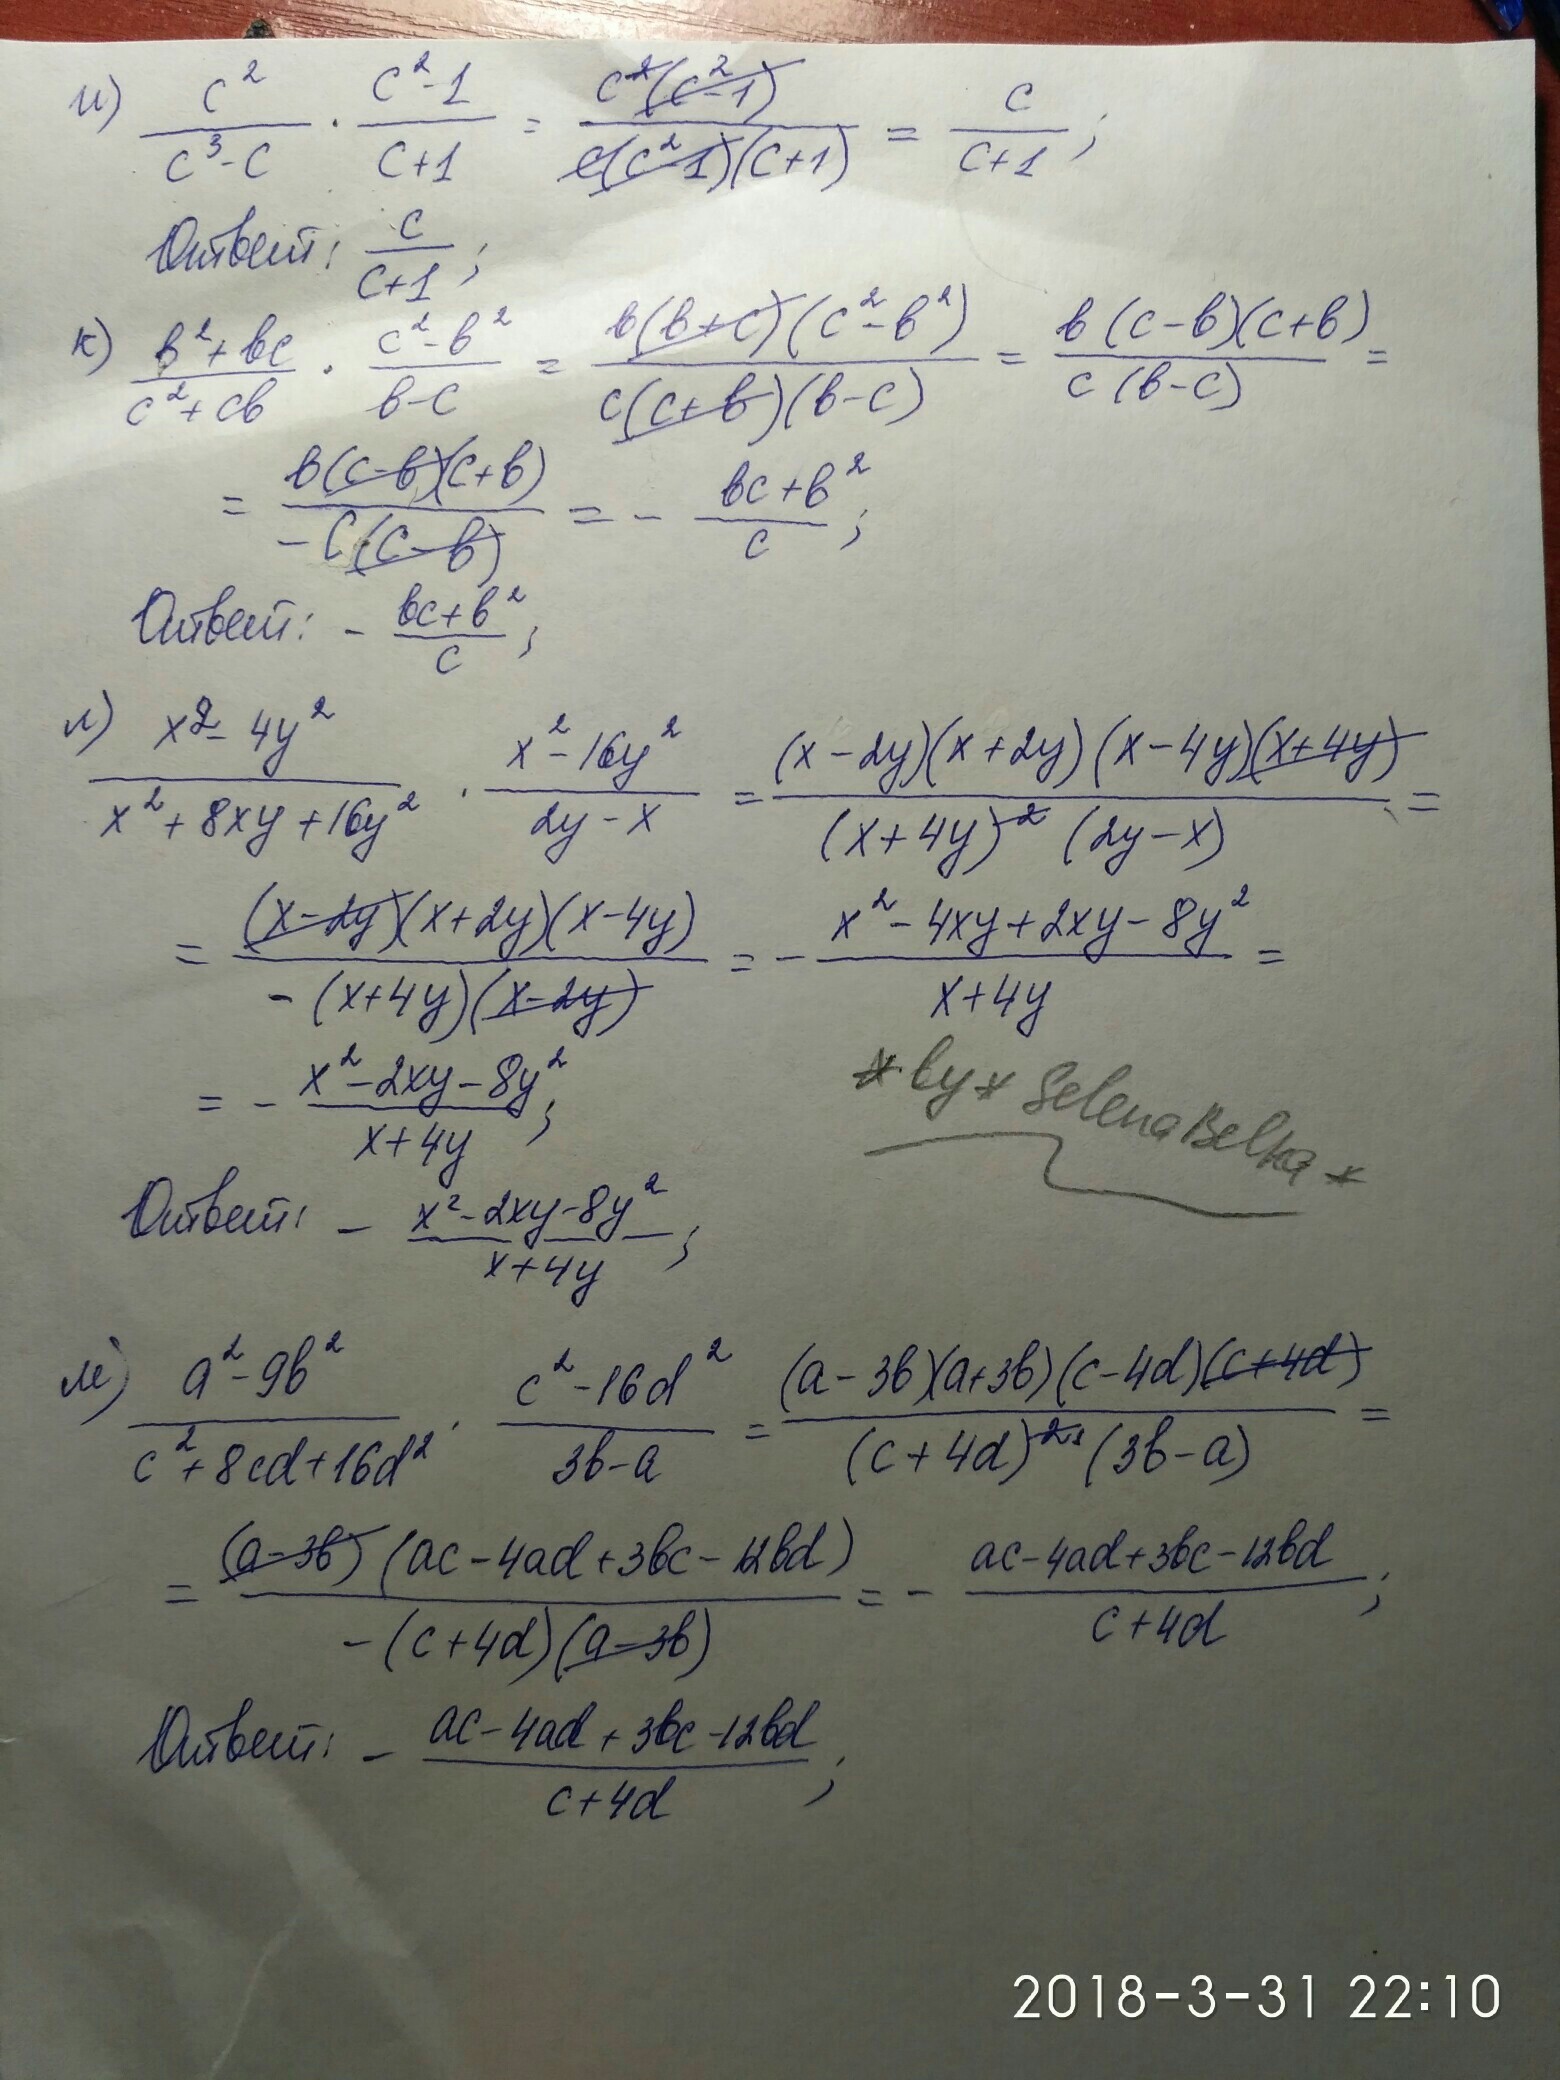 и) c²/(c³-c) · (c²-1)/(c+1) = c²(c²-1)/(c(c²-1)(c+1)) = c/(c+1);
Ответ: c/(c+1);
к) (b²+bc)/(c²+cb) · (c²-b²)/(b-c) = b(b+c)(c²-b²)/(c(c+b)(b-c)) = b(c-b)(c+b)/(c(b-c)) =
= b(c-b)(c+b)/(-c(c-b)) = - (bc+b²)/c;
Ответ: - (bc+b²)/c;
л) (x²-4y²)/(x²+8xy+16y²) · (x²-16y²)/(2y-x) = (x-2y)(x+2y)(x-4y)(x+4y)/((x+4y)²(2y-x)) =
= (x-2y)(x+2y)(x-4y)/(-(x+4y)(x-2y)) = - (x²-4xy+2xy-8y²)/(x+4y) =
= - (x²-2xy-8y²)/(x+4y);
*by* SelenaBelka*
Ответ: - (x²-2xy-8y²)/(x+4y);
м) (a²-9b²)/(c²+8cd+16d²) · (c²-16d²)/(3b-a) = (a-3b)(a+3b)(c-4d)(c+4d)/((c+4d)²(3b-a)) =
= (a-3b)(ac-4ad+3bc-12bd)/(-(c+4d)(a-3b)) = - (ac-4ad+3bc-12bd)/(c+4d);
Ответ: - (ac-4ad+3bc-12bd)/(c+4d);
2018-3-31 22:10